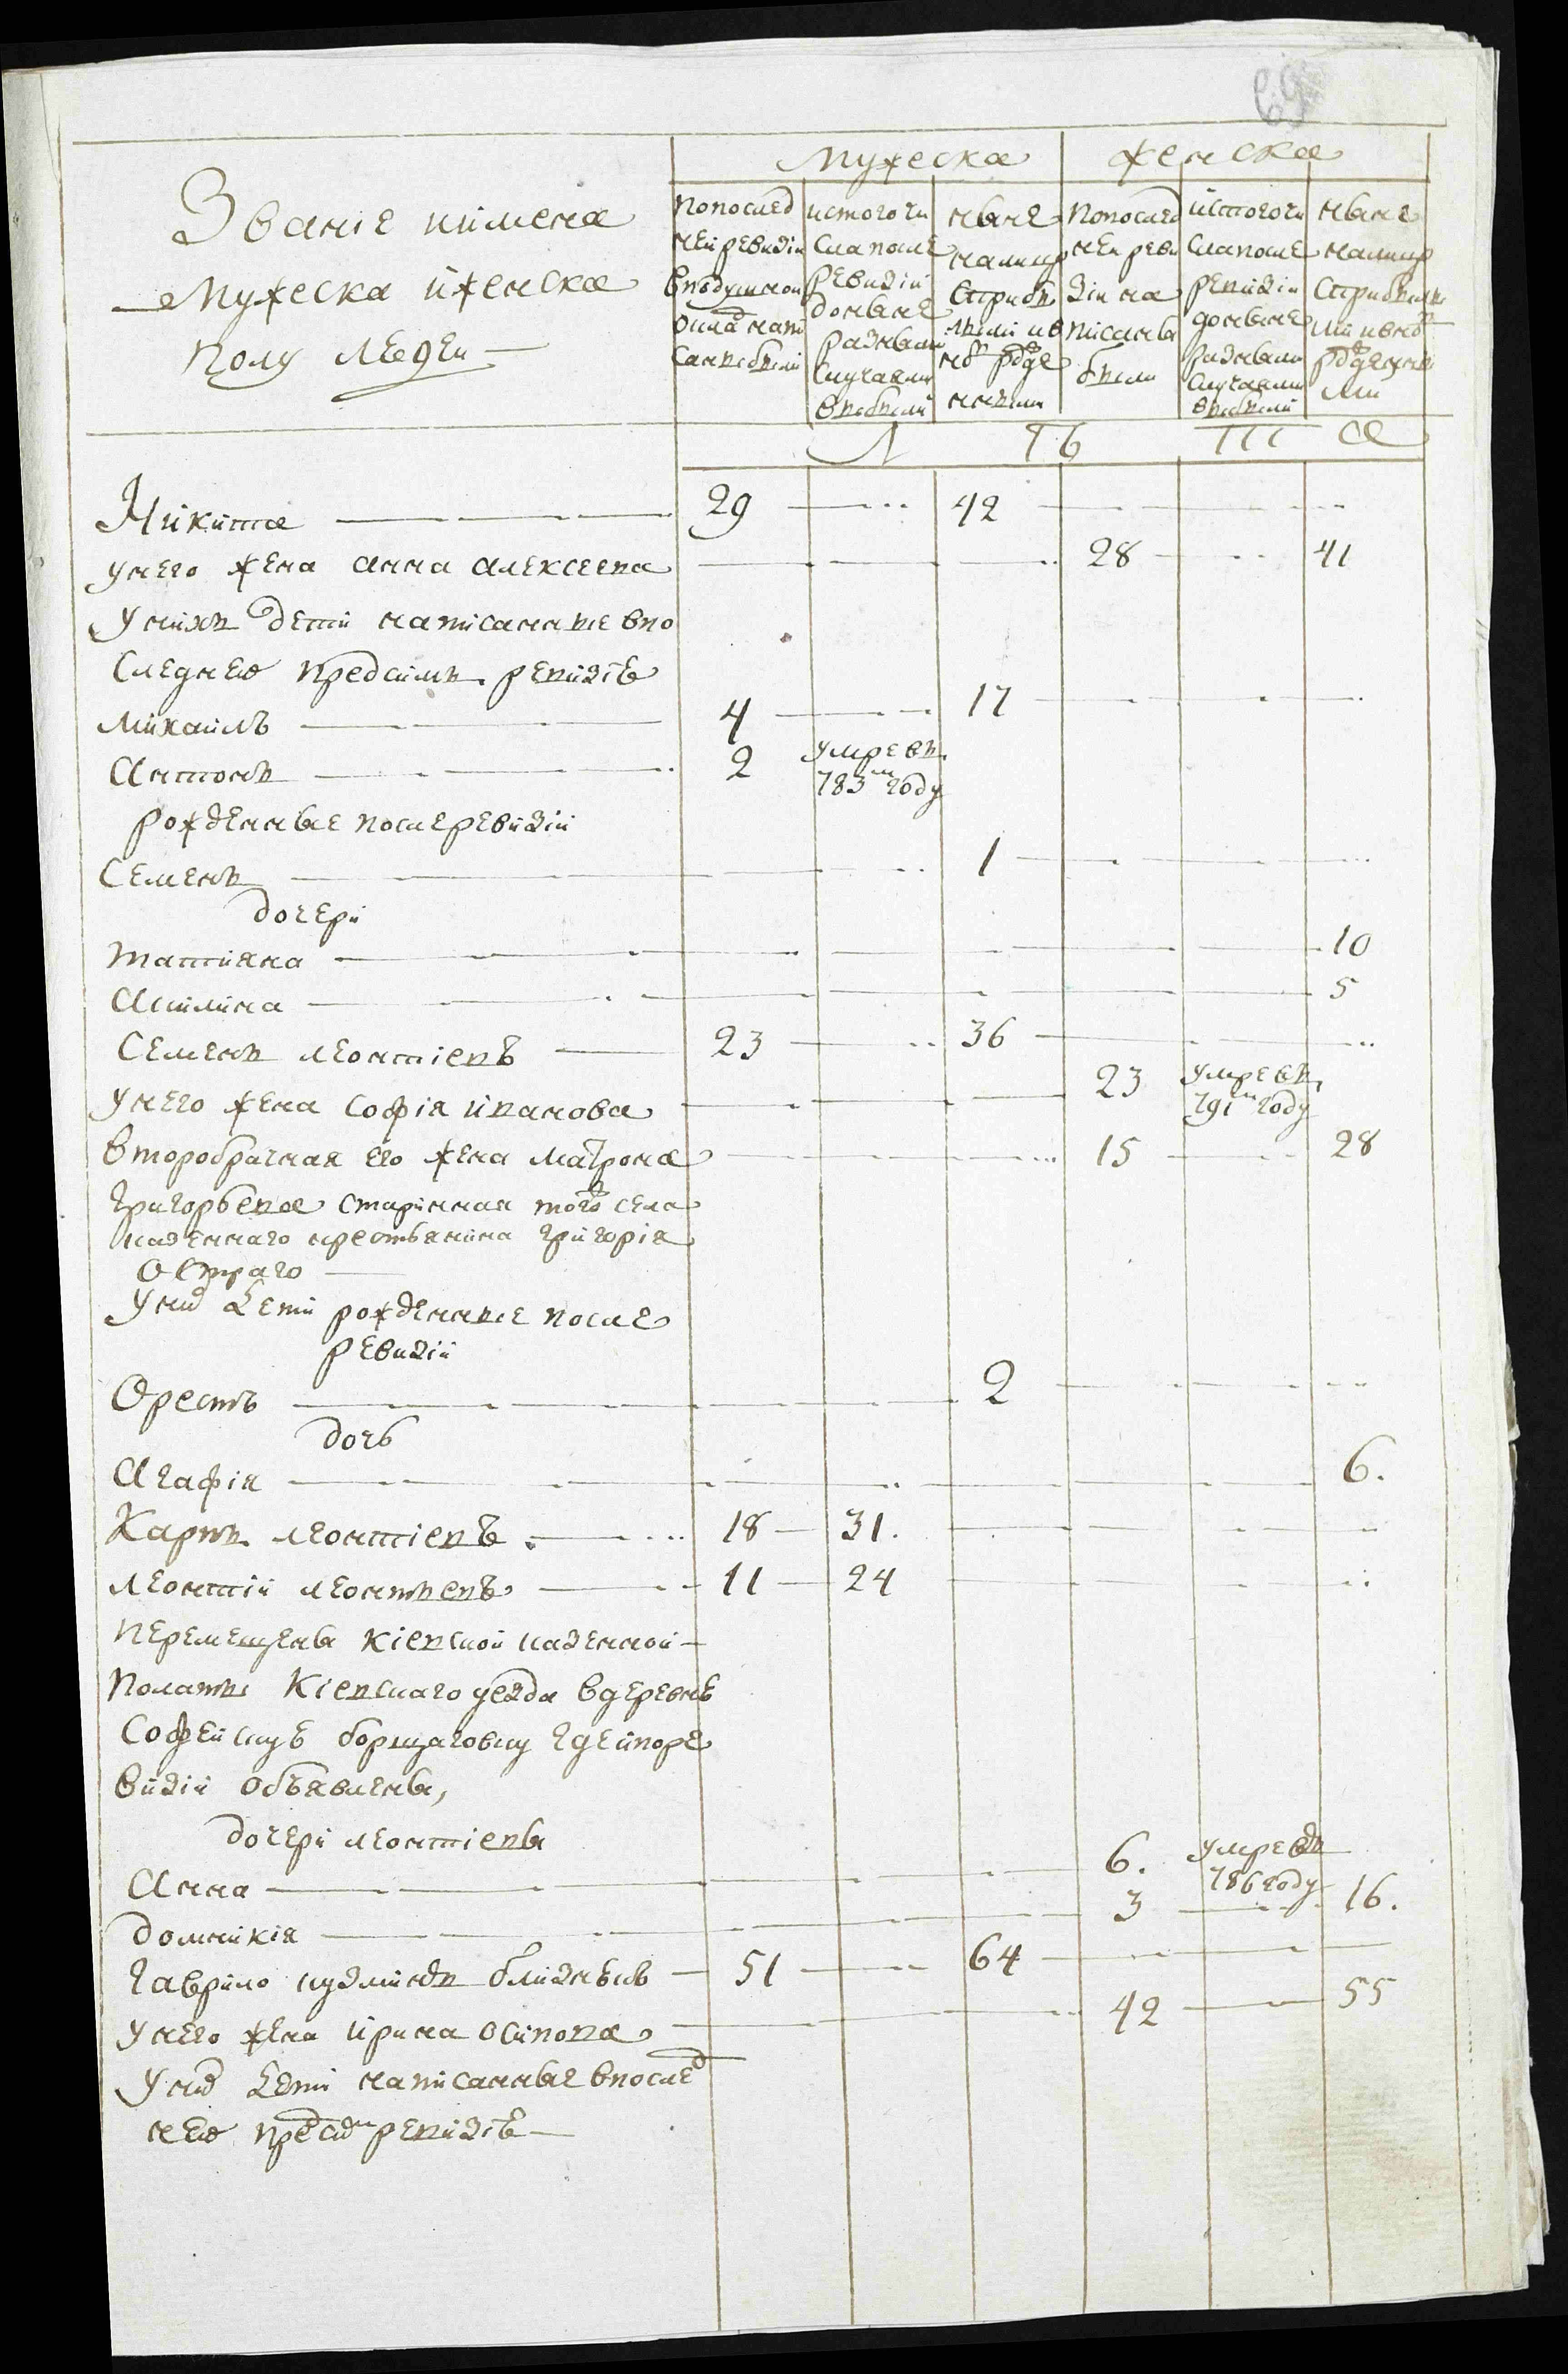 69
Мужеска Женска
Званіе иимена
Мужеска иженска
полу людеи
попослед
ней ревизіи
вподушнои
окладъ напи
санъ были
истогочи
сла после
ревизіи
доныне
разными
случаями
выбыли
ныне
налицо
сприбы
лыми ив
новъ рожде
нными
попослед
неи реви
зіи на
писаны
были
истогочи
сла после
ревизіи
доныне
разными
случаями
выбыли
ныне
налицо
сприбылы
ми ивновъ
рожденны
ми
Л ѣ т а
Никита 29 42
унего жена анна алексеева 28 41
унихъ дети написанные впо
следнею предсимъ ревизію
михаилъ 4 17
Антонъ 2 умре въ 783м году
рожденные после ревизіи
Семенъ 1
дочери
татияна 10
Акилина 5
Семенъ леонтіевъ 23 36
унего жена софія иванова 23 умре въ 791м году
второбрачная его жена матрона 15 28
григорьева старинная того села
казенного крестьянина григорія
Острого
уних дети рожденные после
ревизіи
Орестъ 2
дочь
Агафія 6.
Карпъ леонтіевъ 18 31.
леонтіи леонтьевъ 11 24
перемещены Кіевскои казеннои
полаты Кіевскаго уезда вдеревнѣ
Софеискуѣ борщаговку где ипоре
визіи объявлены,
дочери леонтіевы
Анна 6. умре въ 786 году
домникія 3 16.
гаврило кузминъ близнѣкъ 51 64
унего жена ирина осипова 42 55
уних дети написанные впослед
нею предсим ревизію